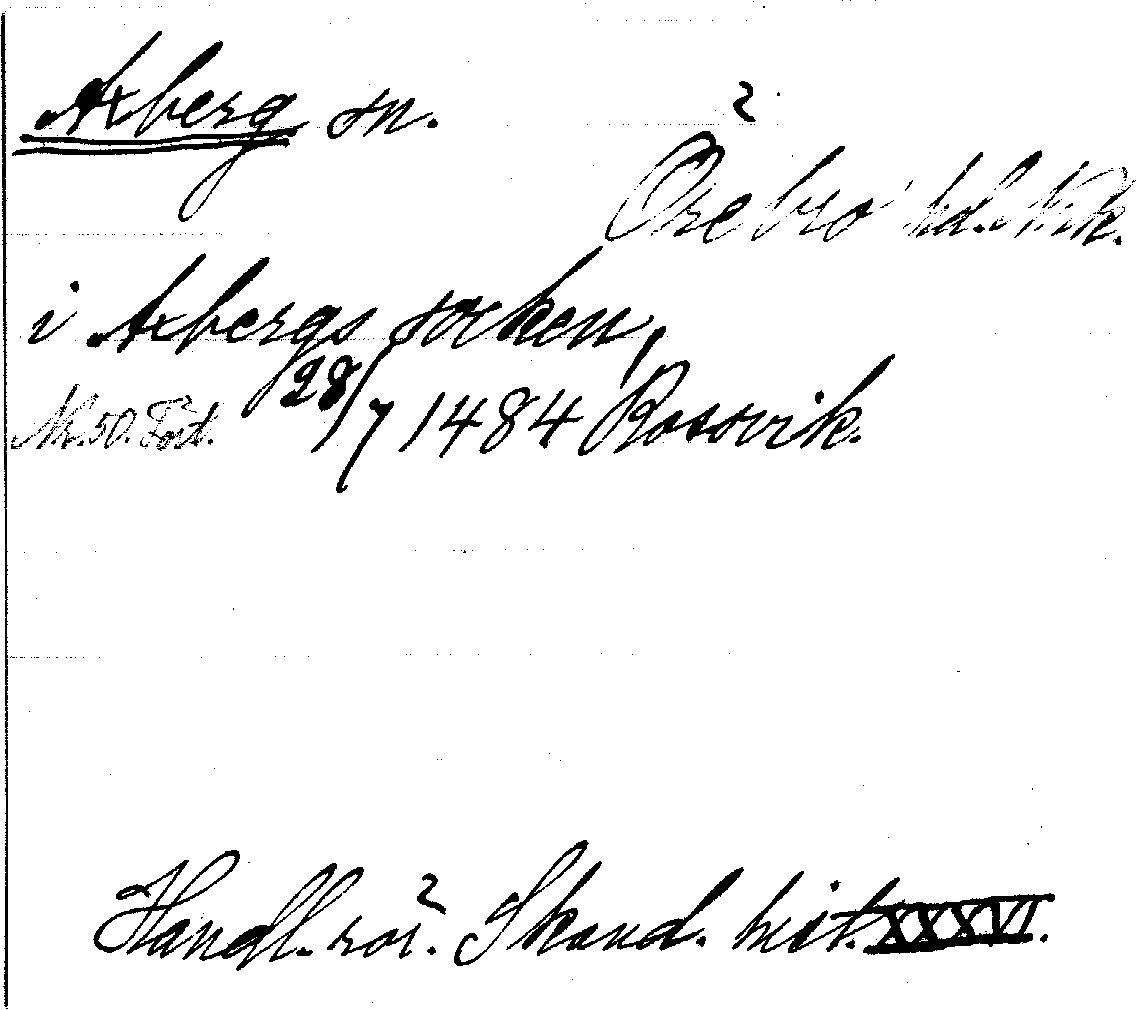 Axberg sn.
Örebro hd. Närk.
i Axbergs socken,
Nr. 50. Fört. 28/7 1484 Rossvik.
Handl. rör. Skand. hist. XXXVI.